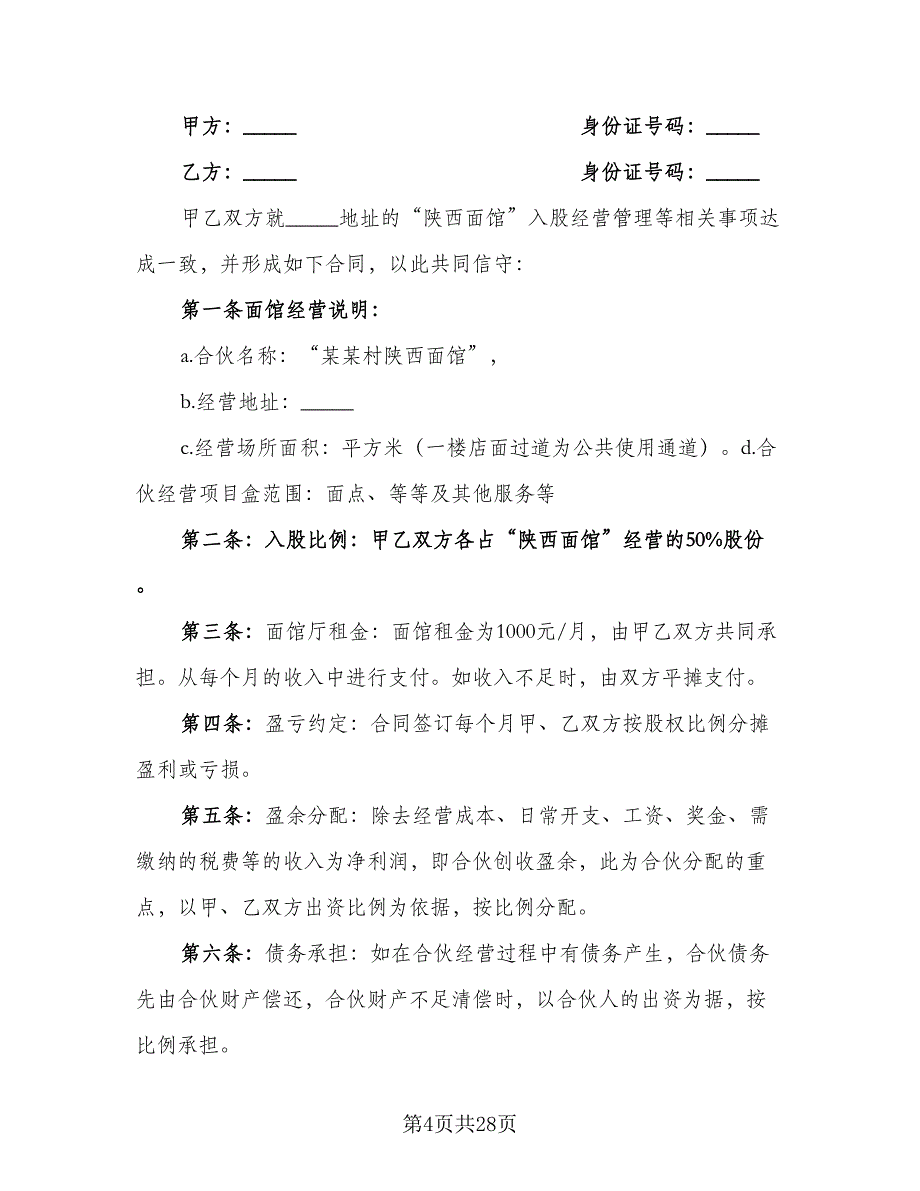 甲方：_____ 身份证号码：_____
乙方：_____ 身份证号码：_____
甲乙双方就_____地址的“陕西面馆”入股经营管理等相关事项达
成一致，并形成如下合同，以此共同信守：
第一条面馆经营说明：
a.合伙名称：“某某村陕西面馆”，
b.经营地址：_____
c.经营场所面积：平方米（一楼店面过道为公共使用通道）。d.合
伙经营项目盒范围：面点、等等及其他服务等
第二条：入股比例：甲乙双方各占“陕西面馆”经营的50%股份
。
第三条：面馆厅租金：面馆租金为1000元/月，由甲乙双方共同承
担。从每个月的收入中进行支付。如收入不足时，由双方平摊支付。
第四条：盈亏约定：合同签订每个月甲、乙双方按股权比例分摊
盈利或亏损。
第五条：盈余分配：除去经营成本、日常开支、工资、奖金、需
缴纳的税费等的收入为净利润，即合伙创收盈余，此为合伙分配的重
点，以甲、乙双方出资比例为依据，按比例分配。
第六条：债务承担：如在合伙经营过程中有债务产生，合伙债务
先由合伙财产偿还，合伙财产不足清偿时，以合伙人的出资为据，按
比例承担。
第4页共28页